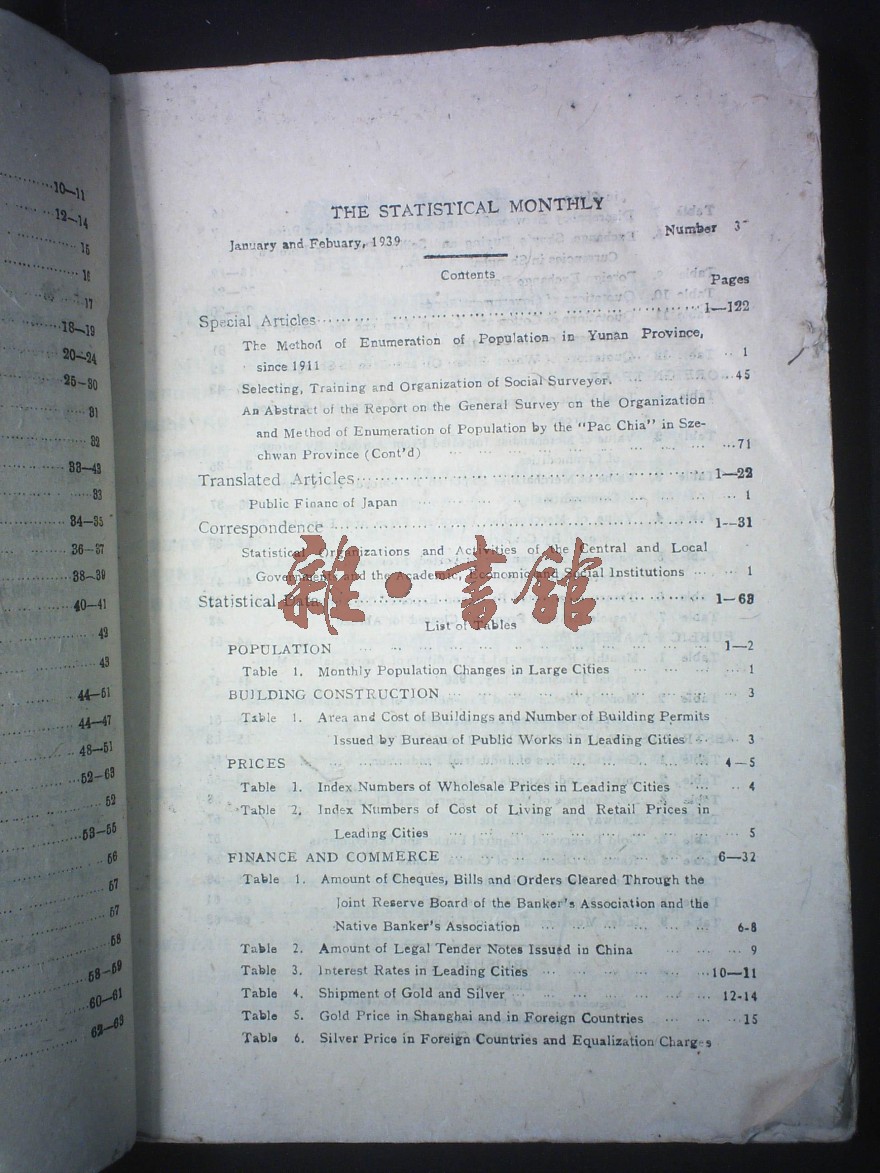 10—11
12—14
15
16
17
18—19
20—24
25—30
31
32
33—43
33
34—35
36—37
38—39
40—41
42
43
44—51
44—47
48—51
52—63
52
53—55
56
57
57
58
58—59
60—61
62—63
THE STATISTICAL MONTHLY
January and Febuary, 1939 Number 3
Contents
Pages
Special Articles 1—122
The Method of Enumeration of Population in Yunan Province,
since 1911 1
Selecting, Training and Organization of Social Surveyor. 45
An Abstract of the Report on the General Survey on the Organization
and Method of Enumeration of Population by the "Pac Chia" in Sze-
chwan Province (Cont'd) 71
Translated Articles 1—22
Public Financ of Japan 1
Correspondence 1—31
Statistical Organizations and Activities of the Central and Local
Governments and the Academic, Economic and Social Institutions 1
Statistical Data 1—63
List of Tables
POPULATION 1—2
Table 1. Monthly Population Changes in Large Cities 1
BUILDING CONSTRUCTION 3
Table 1. Area and Cost of Buildings and Number of Building Permits
Issued by Bureau of Public Works in Leading Cities 3
PRICES 4—5
Table 1. Index Numbers of Wholesale Prices in Leading Cities 4
Table 2. Index Numbers of Cost of Living and Retail Prices in
Leading Cities 5
FINANCE AND COMMERCE 6—32
Table 1. Amount of Cheques, Bills and Orders Cleared Through the
Joint Reserve Board of the Banker's Association and the
Native Banker's Association 6-8
Table 2. Amount of Legal Tender Notes Issued in China 9
Table 3. Interest Rates in Leading Cities 10—11
Table 4. Shipment of Gold and Silver 12-14
Table 5. Gold Price in Shanghai and in Foreign Countries 15
Table 6. Silver Price in Foreign Countries and Equalization Charges
雜·書館